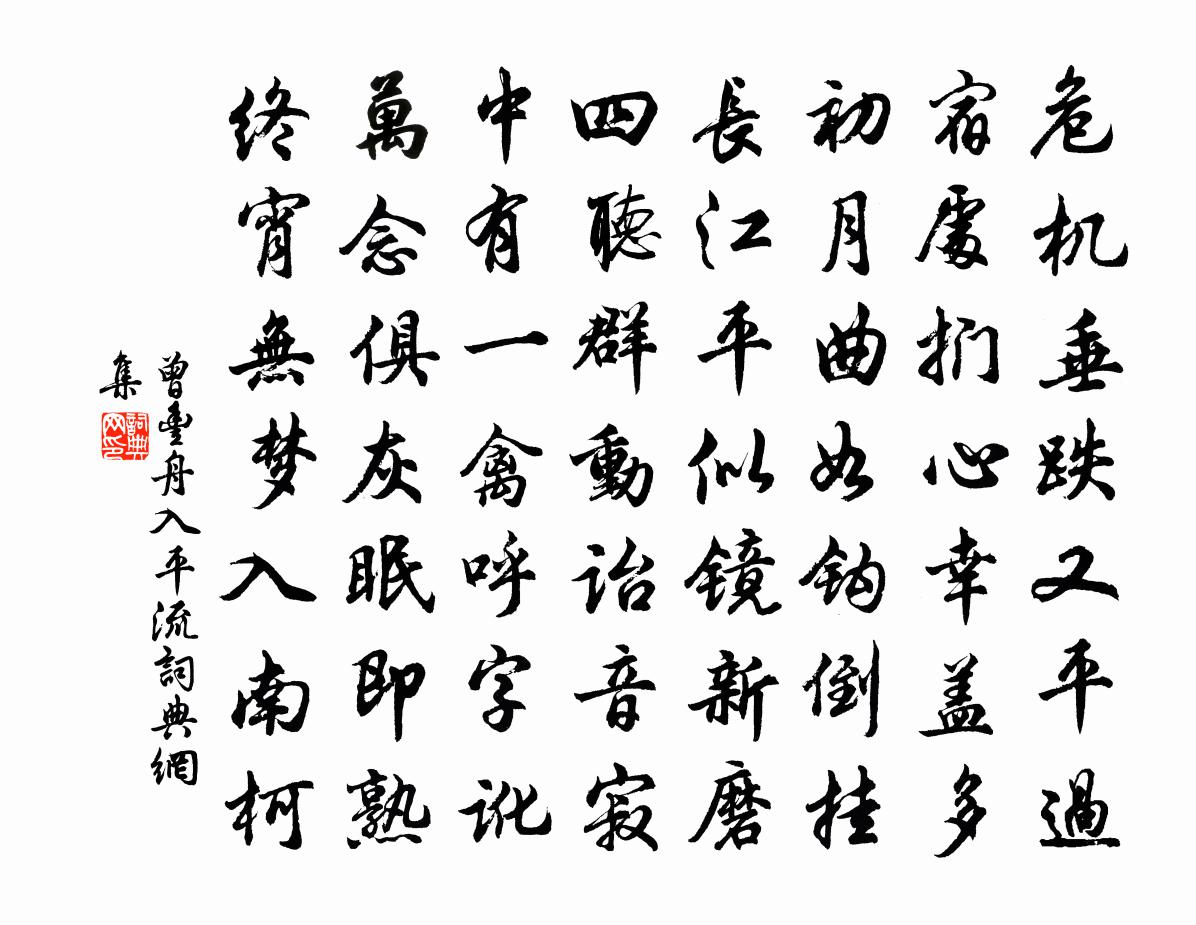 危机垂跌又平過
宿處扪心幸盖多
初月曲如鈎倒挂
長江平似镜新磨
四聽群動詒音寂
中有一禽呼字訛
萬念俱灰眠即熟
終宵無梦入南柯
曾豐舟入平流詞典網
集
詞典网印